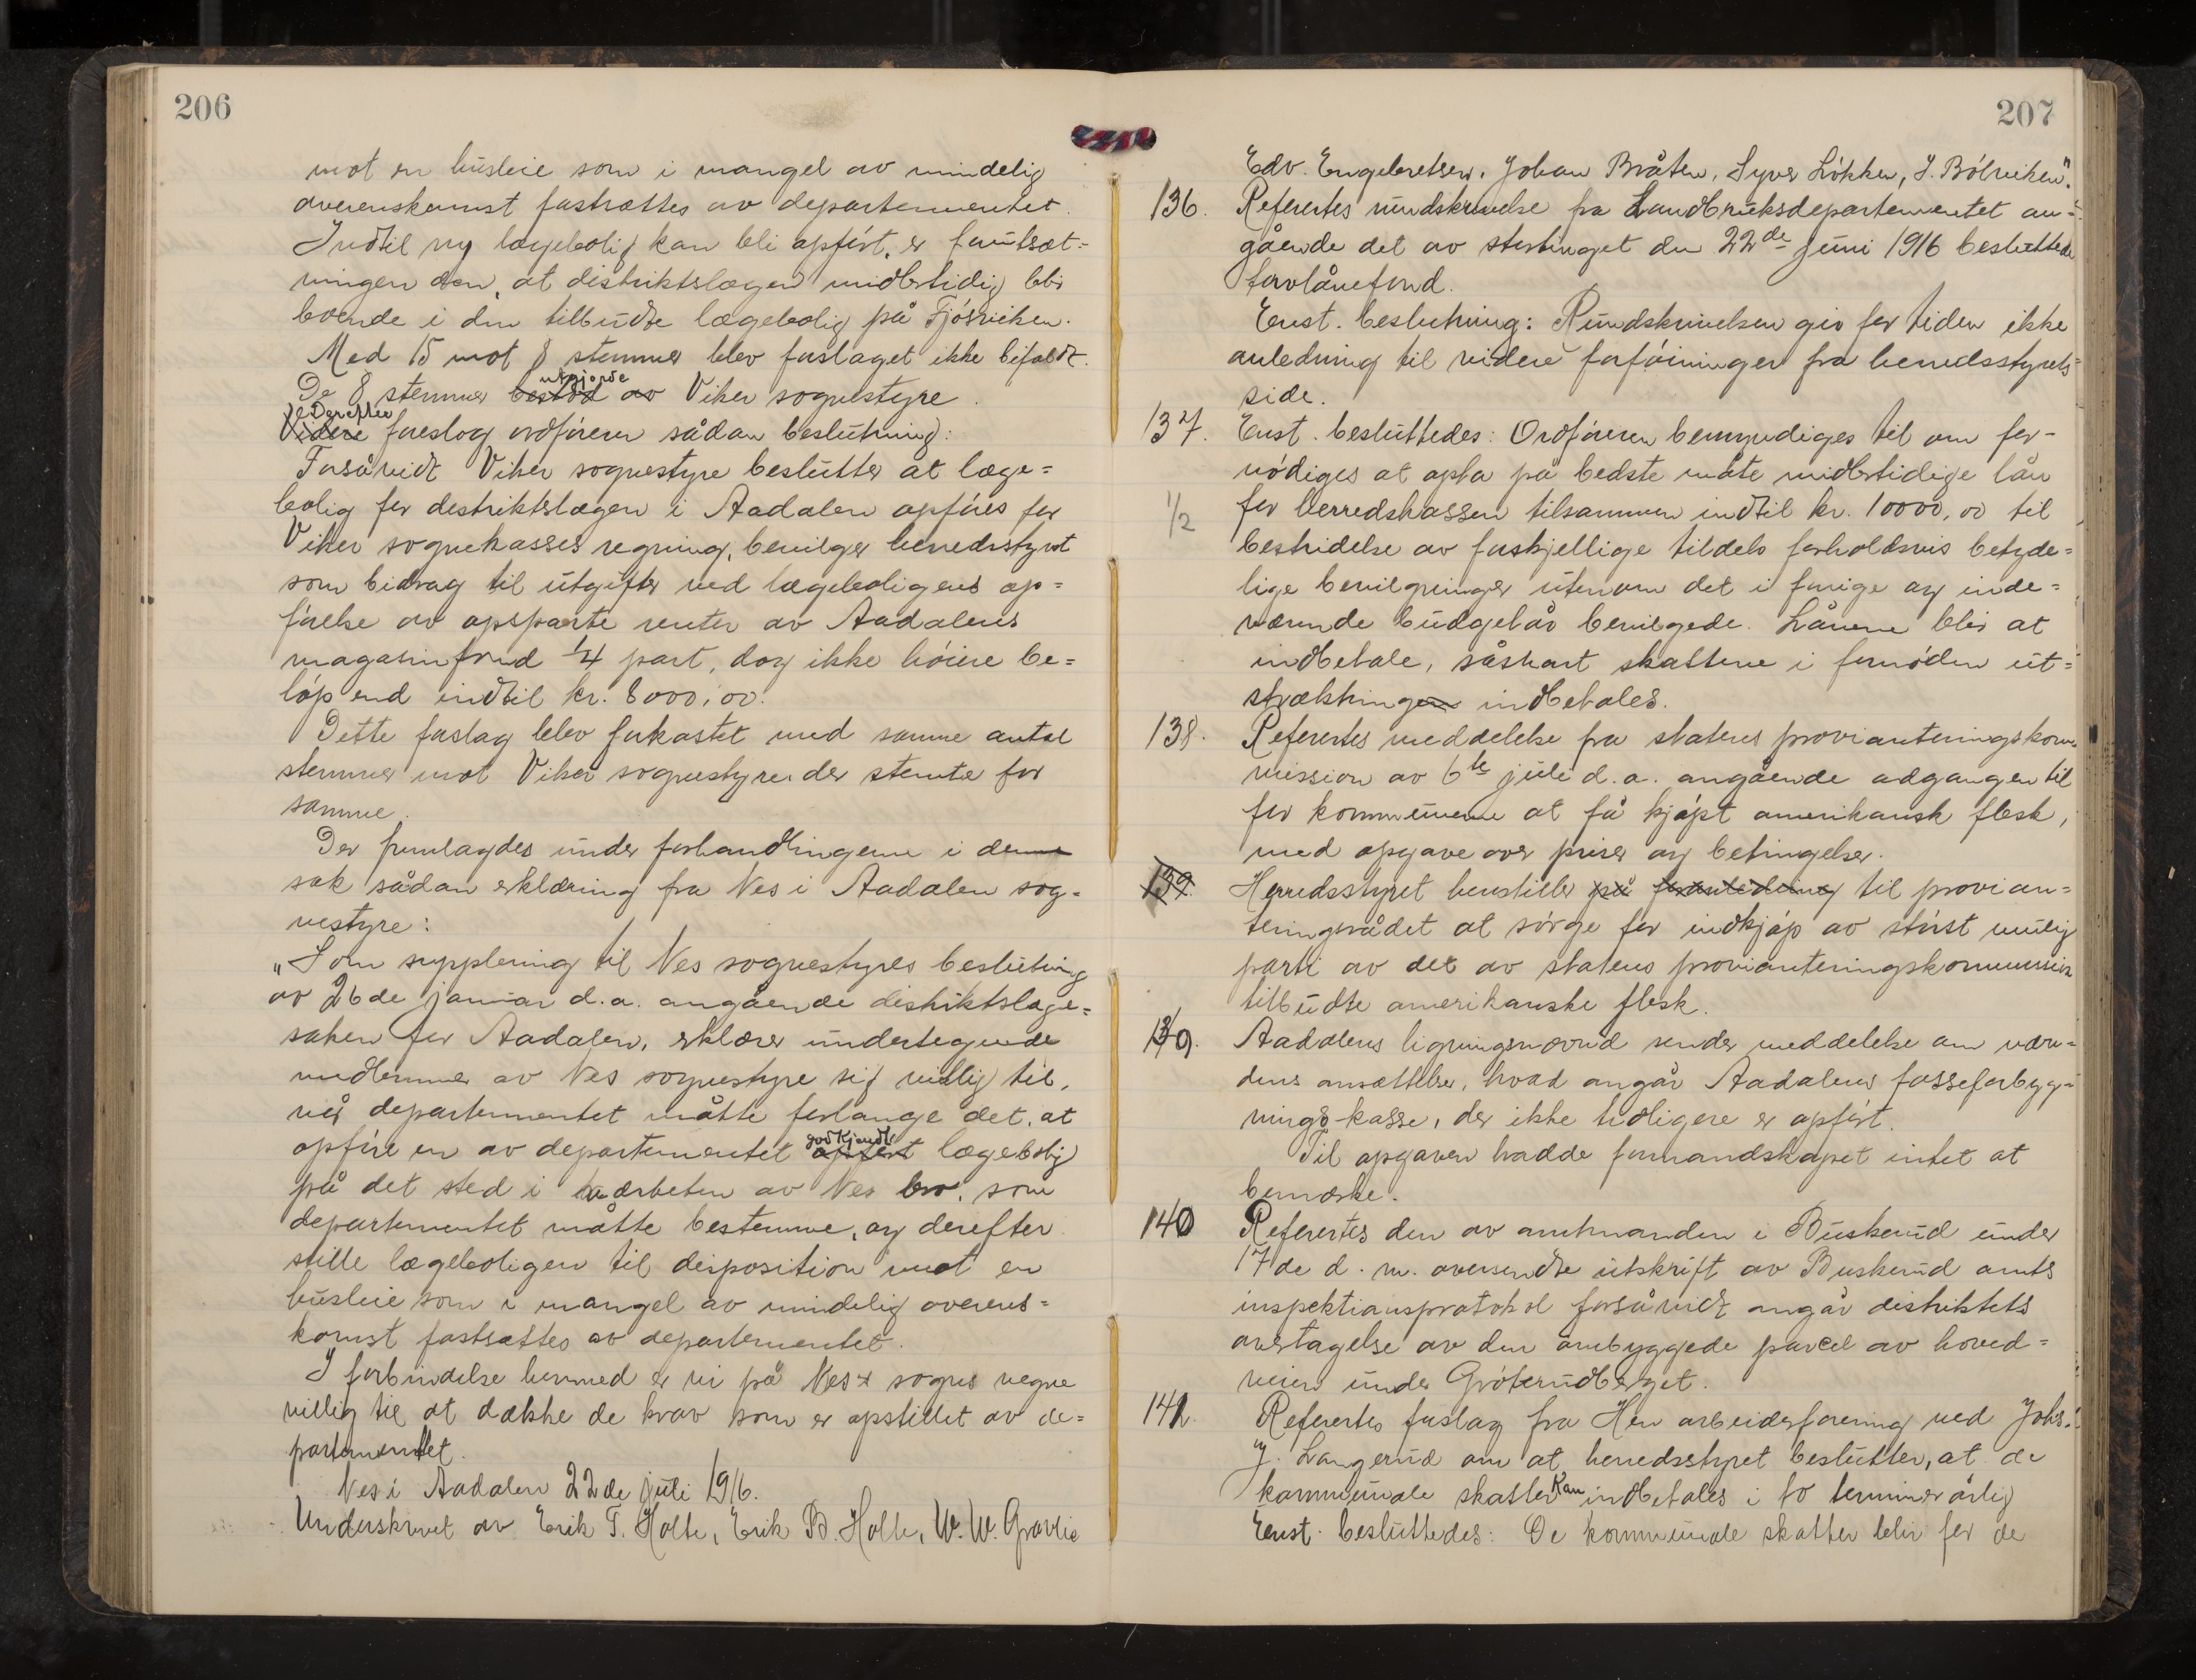 206
mot en husleie som i mangel av mindelig
overenskomst fastsættes av departementet.
Indtil ny lægebolig kan bli opført, er forutsæt=
ningen den, at distriktslægen midlertidig blir
boende i den tilbudte lægebolig på Fjøsviken.
Med 15 mot 8 stemmer blev forslaget ikke bifaldt.
utgjorde
De 8 stemmer bestod av Viker sognestyre.
Derefter
Videre foreslog ordføreren sådan beslutning:
Forsåvidt Viker sognestyre beslutter at læge=
bolig for distriktslægen i Aadalen opføres for
Viker sognekasses regning, bevilger herredsstyret
som bidrag til utgifter ved lægeboligens op=
førelse av opsparte renter av Aadalens
magasinfond 1/4 part, dog ikke høiere be=
løp end indtil kr. 8000,00.
Dette forslag blev forkastet med samme antal
stemmer mot Viker sognestyre der stemte for
samme.
Der fremlagdes under forhandlingerne i denne
sak sådan erklæring fra Nes i Aadalen sog=
nestyre:
„Som supplering til Nes sognestyres beslutning
av 26de januar d.a. angående distriktslæge=
saken for Aadalen, erklærer undertegnede
medlemmer av Nes sognestyre sig villig til,
når departementet måtte forlange det, at
godkjendt
opføre en av departementet opført lægebolig
på det sted i nærheten av Nes bro, som
departementet måtte bestemme, og derefter
stille lægeboligen til disposition mot en
husleie som i mangel av mindelig overens=
komst fastsættes av departementet.
I forbindelse hermed er vi på Nes sogns vegne
villig til at dække de krav som er opstillet av de=
partementet.
Nes i Aadalen 22de juli 1916.
Underskrevet av Erik T. Holte, Erik B. Holte, W. W. Gravlie
207
Edv. Engebretsen, Johan Bråten, Syver Løkken, J. Bölviken".
136. Referertes rundskrivelse fra Landbruksdepartementet an=
gående det av stortinget den 22de juni 1916 besluttede
forlånefond.
Enst. beslutning: Rundskrivelsen gir for tiden ikke
anledning til videre forføininger fra herredsstyrets
side.
137. Enst. besluttedes: Ordføreren bemyndiges til om for-
nødiges at opta på bedste måte midlertidige lån
1/2 for herredskassen tilsammen indtil kr. 10000,00 til
bestridelse av forskjellige tildels forholdsvis betyde=
lige bevilgninger utenom det i forrige og inde=
værende budgetår bevilgede. Lånene blir at
indbetale, såsnart skattene i fornøden ut=
strækningen indbetales.
138. Referertes meddelelse fra statens provianteringskom=
mission av 6te juli d.a. angående adgangen til
for kommunene at få kjøpt amerikansk flesk,
med opgave over priser og betingelser.
139. Herredsstyret henstiller på foranledning til provian=
teringsrådet at sørge for indkjøp av størst mulig
parti av det av statens provianteringskommission
tilbudte amerikanske flesk.
139. Aadalens ligningsnævnd sender meddelelse om nævn=
dens ansættelse, hvad angår Aadalens fosseforbyg=
nings-kasse, der ikke tidligere er opført.
Til opgaven hadde formandskapet intet at
bemærke.
140 Referertes den av amtmanden i Buskerud under
17de d.m. oversendte utskrift av Buskerud amts
inspektionsprotokol forsåvidt angår distriktets
overtagelse av den ombyggede parcel av hoved=
veien under Gröterudberget.
141. Referertes forslag fra Hen arbeiderforening ved Johs.
J. Langerud om at herredsstyret beslutter, at de
kommunale skatter kan indbetales i to terminer årlig
Enst. besluttedes: De kommunale skatter blir for de